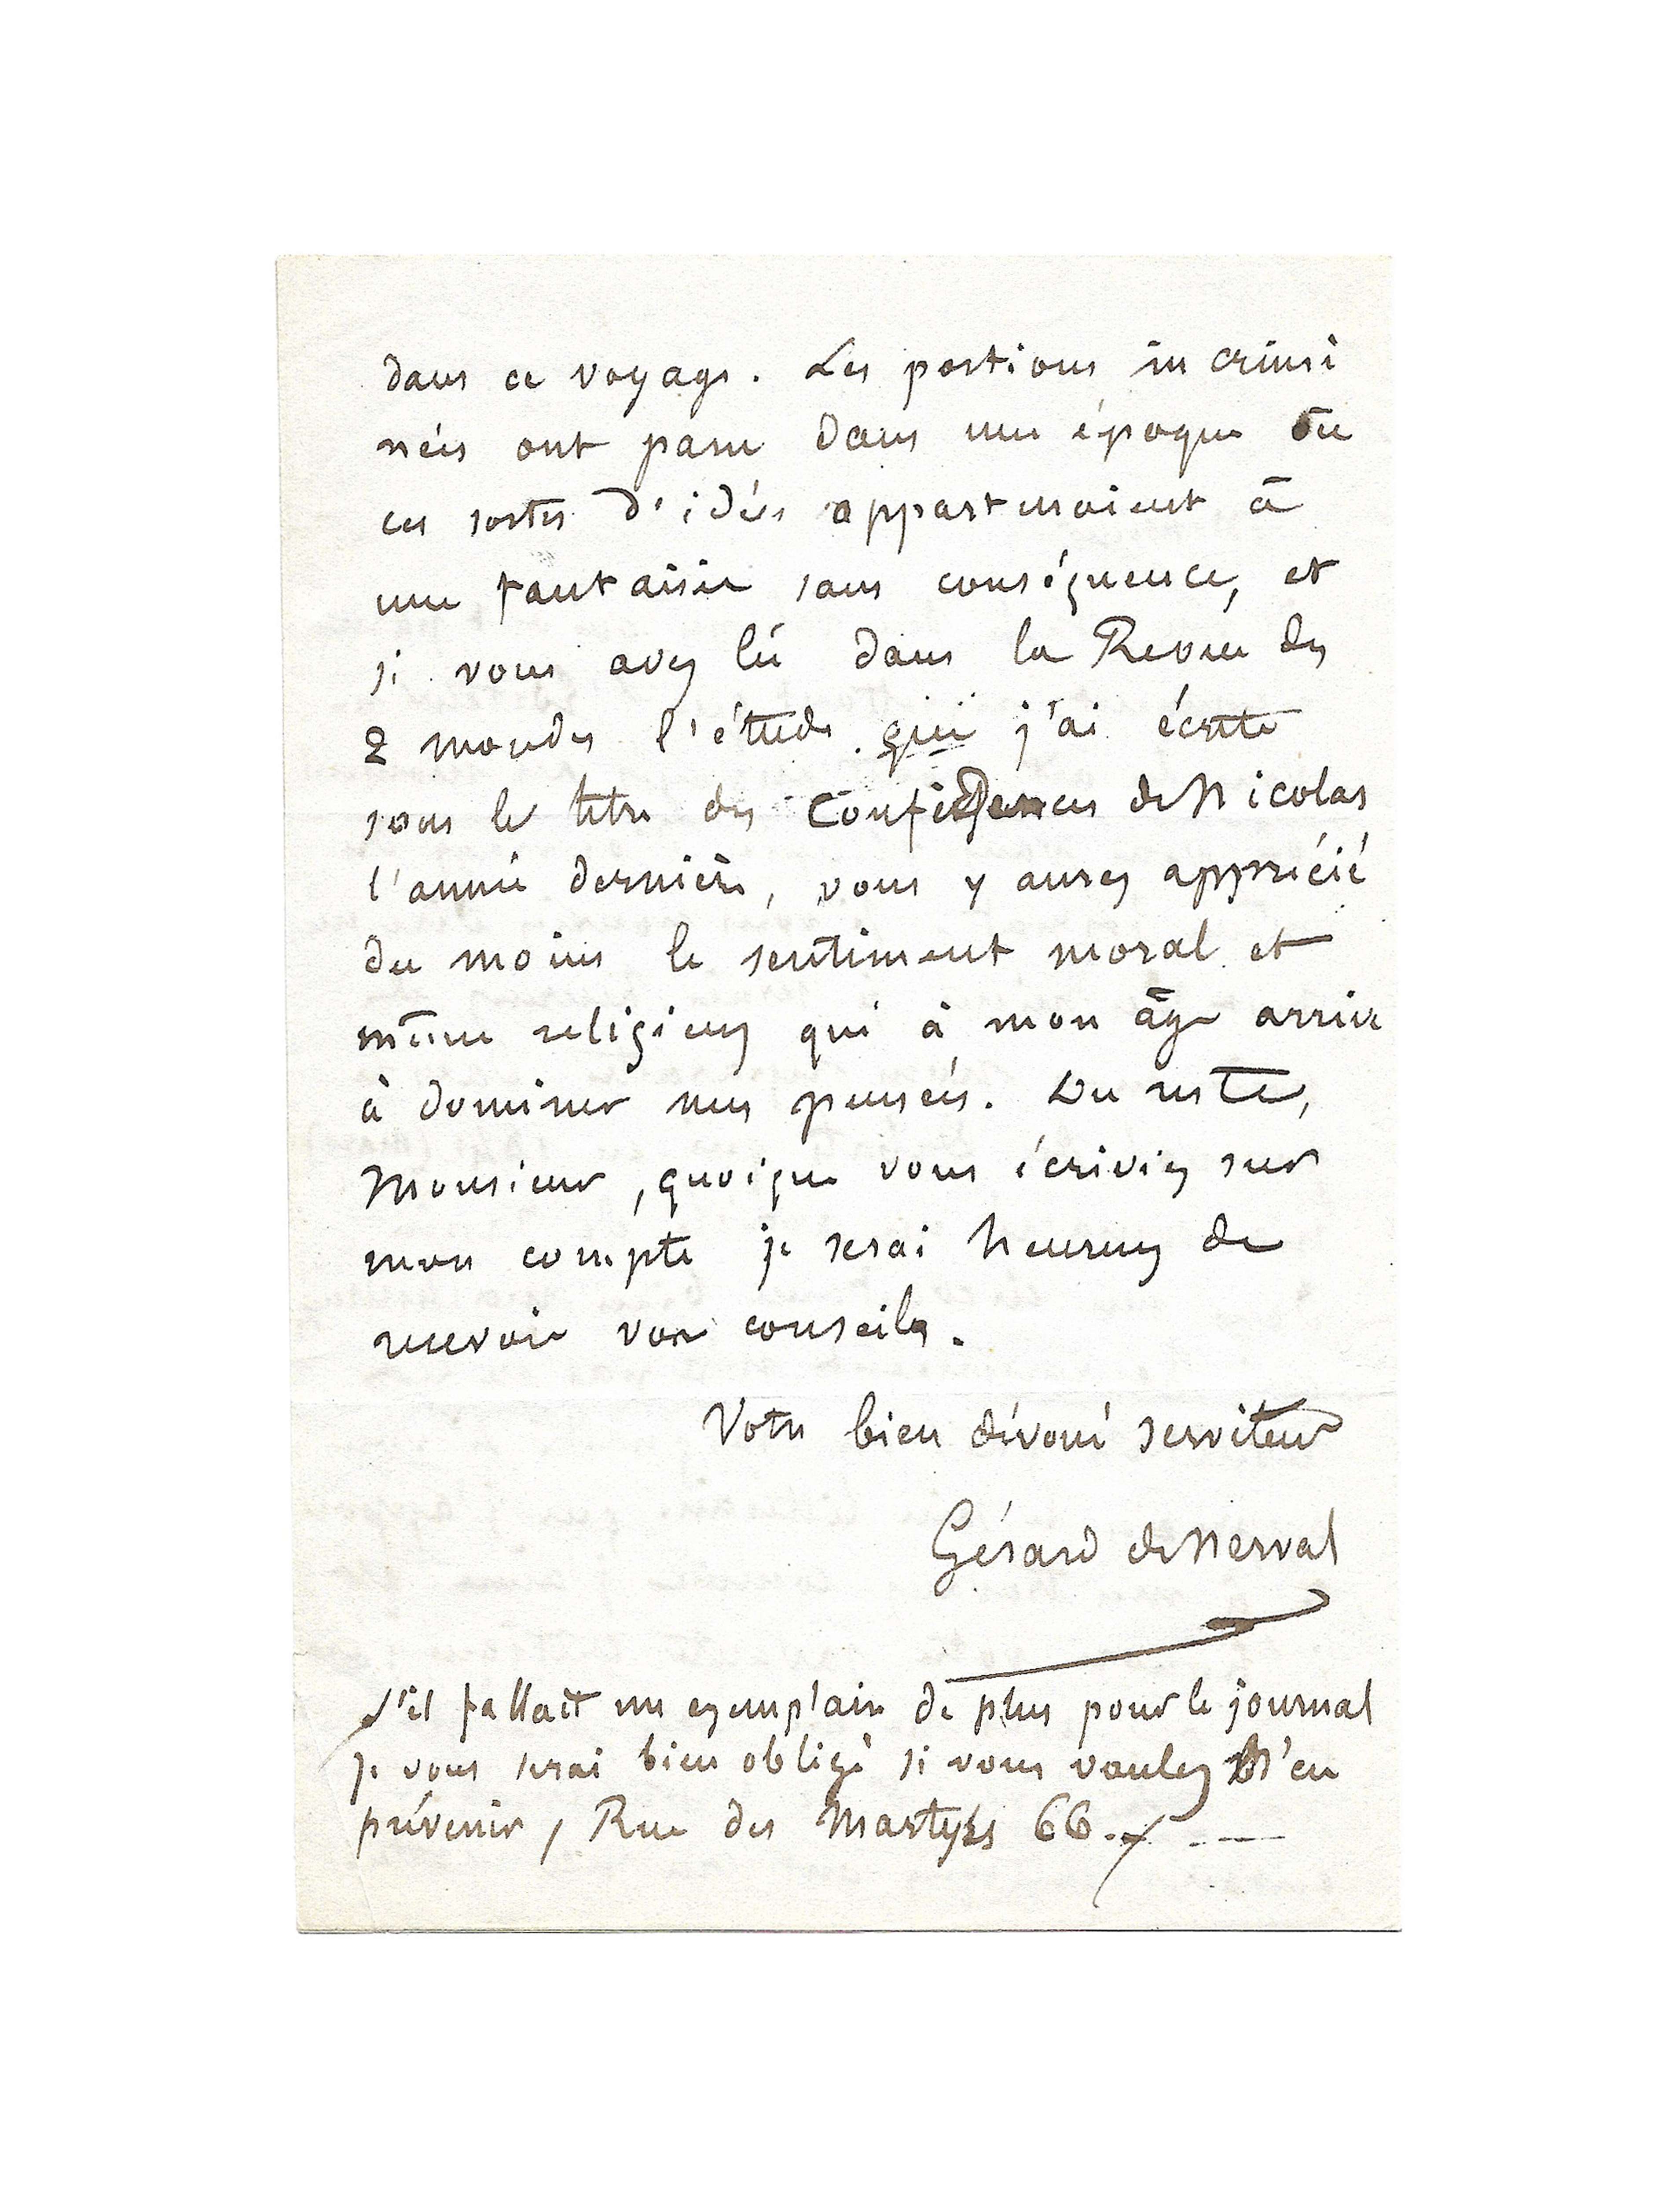 dans ce voyage. Les portions incrimi
nées ont paru dans une époque où
ces sortes d'idées appartenaient à
une fantaisie sans conséquence, et
si vous avez lû dans la Revue des
2 mondes l'étude que j'ai écrite
sous le titre des Confidences de Nicolas
l'année dernière, vous y aurez apprécié
du moins le sentiment moral et
même religieux qui à mon âge arrive
à dominer nos pensées. Du reste,
Monsieur, quoique vous écriviez sur
mon compte je serai heureux de
recevoir vos conseils.
Votre bien dévoué serviteur
Gérard de Nerval
S'il fallait un exemplaire de plus pour le journal
je vous serai bien obligé si vous voulez m'en
prévenir, Rue des Martyrs 66.